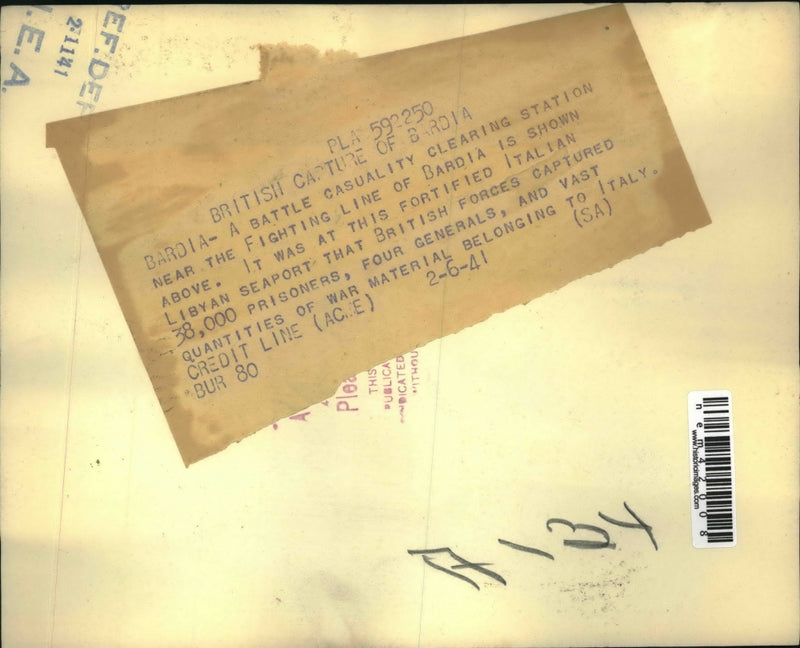 REF. DEP
21141
N.E.A.
PLA 592250
BRITISH CAPTURE OF BARDIA
BARDIA- A BATTLE CASUALITY CLEARING STATION
NEAR THE FIGHTING LINE OF BARDIA IS SHOWN
ABOVE. IT WAS AT THIS FORTIFIED ITALIAN
LIBYAN SEAPORT THAT BRITISH FORCES CAPTURED
38,000 PRISONERS, FOUR GENERALS, AND VAST
QUANTITIES OF WAR MATERIAL BELONGING TO ITALY.
CREDIT LINE (ACME) 2-6-41 (SA)
BUR 80
A
Plea
THIS
PUBLICA
NDICATED
ITHOU
nem42008
www.historicimages.com